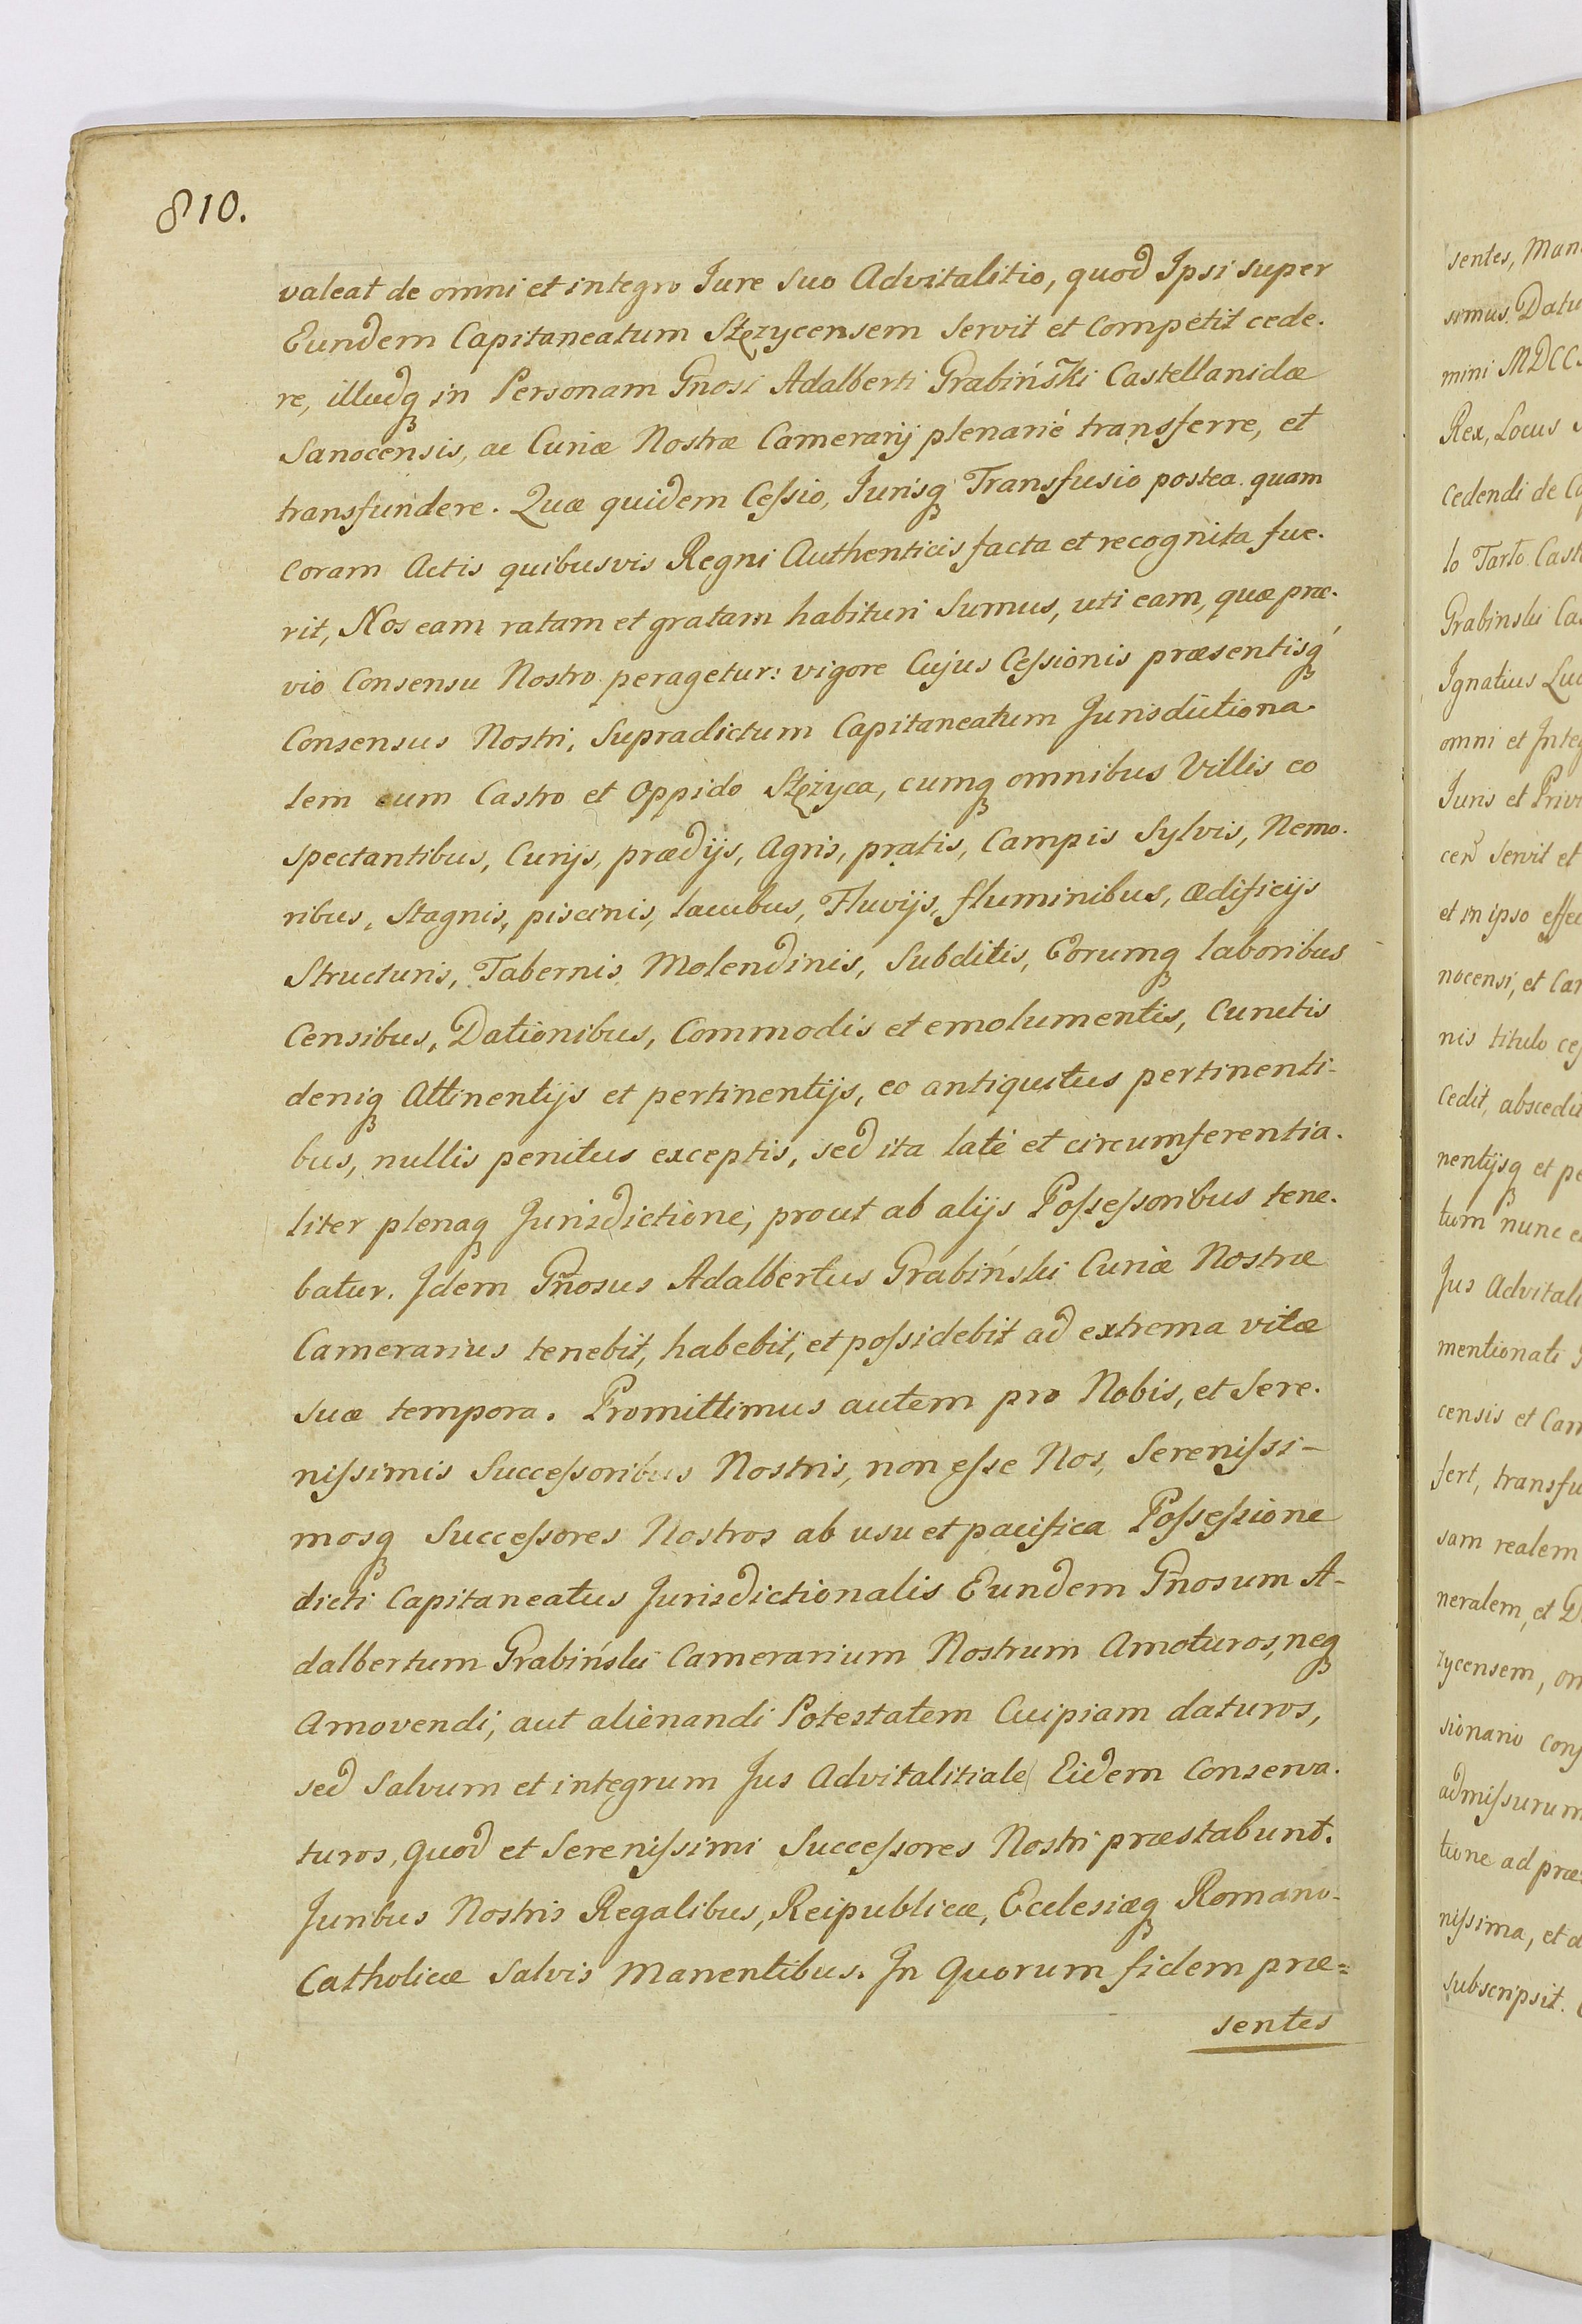 810.
valeat de omni et integro Iure Suo Advitalitio, quod Ipsi super
Eundem Capitaneatum Stężycensem Servit et Competit cede-
re, illudq in Personam Gnosi Adalberti Grabiński Castellanidæ
Sanocensis, ac Curiæ Nostræ Camerarij plenarié transferre, et
transfundere. Quæ quidem Ceſsio, Iurisq Transfusio postea quam
Coram Actis quibusvis Regni Authenticis facta et recognita fue-
rit, Nos eam ratam et gratam habituri Sumus, uti eam, quæ præ-
vio Consensu Nostro peragetur: vigore Cujus Ceſsionis præsentisq
Consensus Nostri, Supradictum Capitaneatum Jurisdictiona-
lem cum Castro et Oppido Stężyca, cumq omnibus Villis eo
spectantibus, Curijs, prædijs, Agris, pratis, Campis Sylvis, Nemo-
ribus, Stagnis, piscinis, lacubus, Fluvijs, fluminibus, ædificijs
Structuris, Tabernis Molendinis, Subditis, Eorumq laboribus
Censibus, Dationibus, Commodis et emolumentis, Cunctis
deniq Attinentijs et pertinentijs, eo antiquitus pertinenti-
bus, nullis penitus exceptis, sed ita laté et circumferentia-
liter plenaq Jurisdictione, prout ab alijs Poſseſsoribus tene-
batur. Idem Gnosus Adalbertus Grabiński Curiæ Nostræ
Camerarius tenebit, habebit, et poſsidebit ad extrema vitæ
suæ tempora. Promittimus autem pro Nobis, et Sere-
niſsimis Succeſsoribus Nostris, non eſse Nos, Sereniſsi-
mosq Succeſsores Nostros ab usu et pacifica Poſseſsione
dicti Capitaneatus Jurisdictionalis Eundem Gnosum A-
dalbertum Grabiński Camerarium Nostrum Amoturos, neq
Amovendi, aut alienandi Potestatem Cuipiam daturos,
sed Salvum et integrum Jus Advitalitiale Eidem Conserva-
turos, quod et Sereniſsimi Succeſsores Nostri præstabunt.
Juribus Nostris Regalibus, Reipublicæ, Ecclesiæq Romano-
Catholicæ Salvis Manentibus. In Quorum fidem præ=
sentes
sentes,
simus. Datu
mini MDCC
Rex, Locus
Cedendi de
lo Tarło Cast
Grabinski Ca
Ignatius
omni et Inte
Juris et Privi
cen Servit et
et in ipso effec
nocensi, et Cam
nis titulo
Cedit, abscedit
nentijsq et pe
tum nunc
Jus Advitali
mentionati
censis et Cam
fert, transfu
sam realem
neralem, et
życensem, om
sionario
admiſsurum
tione ad præ
niſsima, et
subscripsit.